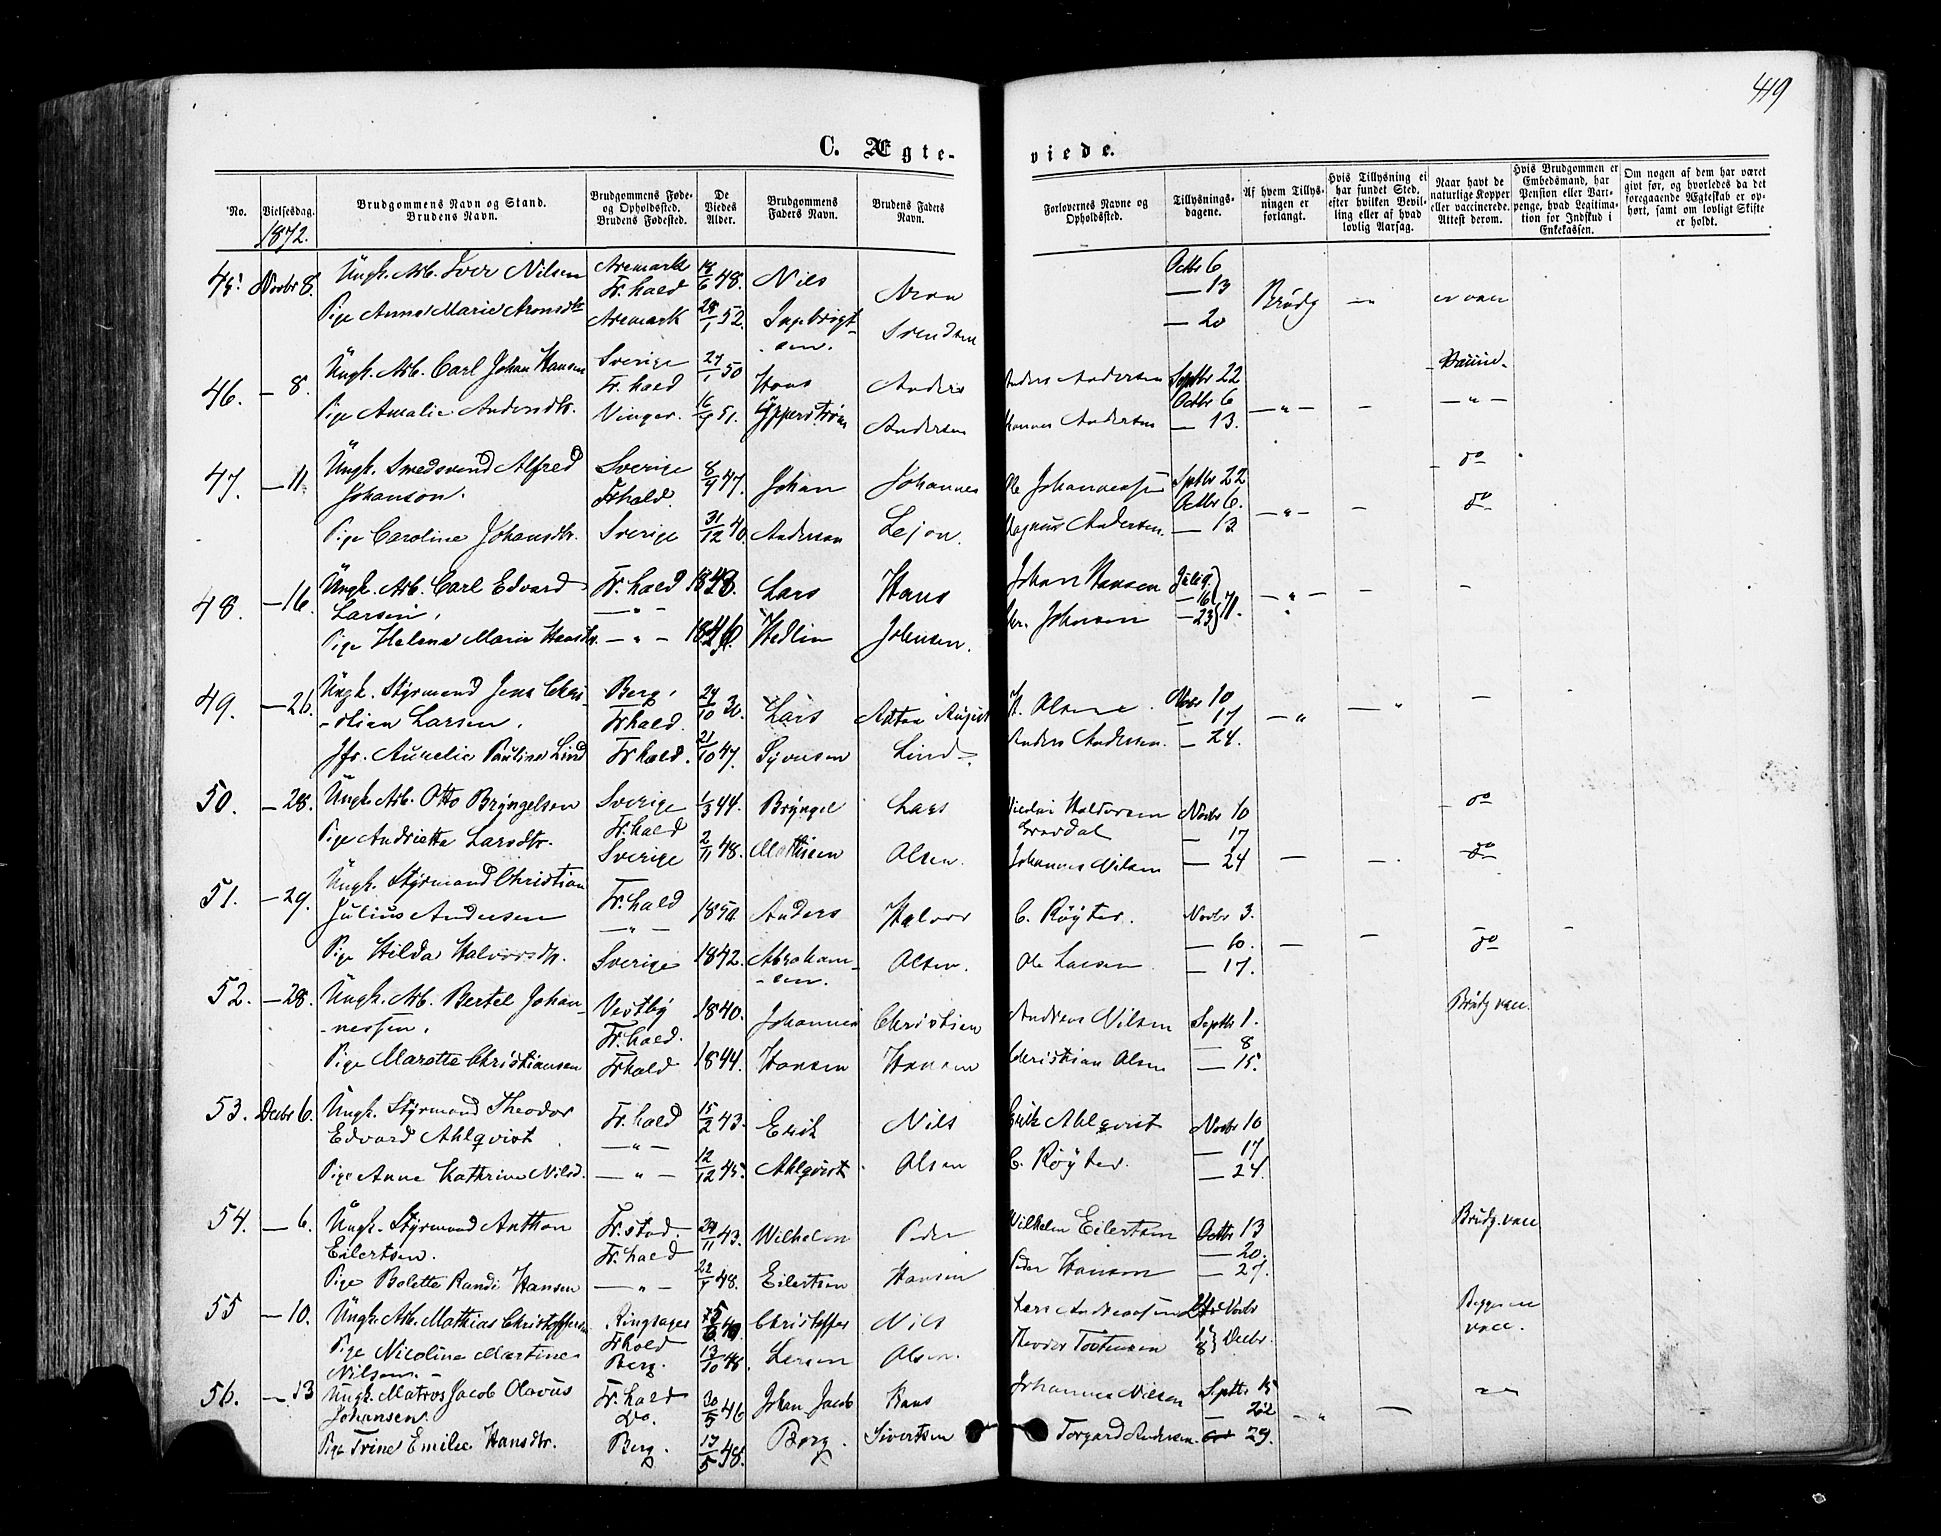 449
C. Ægte-
viede.
No.
Vielsesdag.
1872.
Brudgommens Navn og Stand.
Brudens Navn.
Brudgommens Føde-
og Opholdssted.
Brudens Fødested.
De
Viedes
Alder.
Brudgommens
Faders Navn.
Brudens Faders
Navn.
Forlovernes Navne og
Opholdssted.
Tillysnings-
dagene.
Af hvem Tillys-
ningen er
forlangt.
Hvis Tillysning ei
har fundet Sted,
efter hvilken Bevil-
ling eller af hvad
lovlig Aarsag.
Naar havt de
naturlige Kopper
eller vaccinerede.
Attest derom.
Hvis Brudgommen er
Embedsmand, har
Pension eller Vart-
penge, hvad Legitima-
tion for Indskud i
Enkekassen.
Om nogen af dem har været
givt før, og hvorledes da det
foregaaende Ægteskab er op-
hørt, samt om lovligt Skifte
er holdt.
45. Novbr 8. Ungk. Arb. Iver Nilsen Aremark 18/6 48. Nils Aron Octbr 6
Fr.hald — 13 Brudg — er vac
Pige Anna Marie Aronsdtr Aremark 28/1 52. Ingebrigt- Svendsen — 20
sen.
46. — 8. Ungk. Arb. Carl Johan Hansen Sverige 27/1 50 Hans Anders Anders Andersen Septbr 22
Fr.hald Octbr 6 — " — — — " —
Pige Amalie Andersdtr. Vinger. 51. Andersen Hannes Andersen — 13.
47. — 11. Ungk. Smedsvend Alfred Sverige 8/9 47. Johan Johannes Ole Johannessen Septbr 22 — do
Johanson. Frhald. Octbr 6. — " — — do
Pige Caroline Johansdtr. Sverige 31/12 40. Anderson Lejon. Magnus Andersen. — 13
48. — 16. Ungk. Arb. Carl Edvard Fr.hald 1848. Lars Hans Johan Hansen Julig.
Larsen. — " — — 16 } 71. — " — — —
Pige Helena Marie Hansdtr. — " — 1846. Hedlin Johnsen. Johnsen — 23
49. — 26. Ungk. Styrmand Jens Chri- Berg. 24/10 30. Lars Anton August H. Olsen. Novbr 10 —
-stian Larsen. Frhald. — 17 — " — "
Jfr. Aurelia Pauline Lind Fr.hald. 21/10 47. Syversen Lind Anders Andersen. — 24.
50. — 28. Ungk. Arb. Otto Bryngelsen Sverige 1/3 44. Bryngel Lars Nicolai Halvorsen Novbr 10 — do
Fr.hald Gravdal — 17
Pige Andrietta Larsdtr. Sverige 2/11 48. Mathisen Olsen. Johannes Nilsen — 24 — — do
51. — 29. Ungk. Styrmand Christian Fr.hald
Julius Andersen — " — 1850 Anders Halvor C. Røyter. Novbr 3.
— 10. — — do —
Pige Hilda Halvorsdtr. Sverige 1842. Abraham- Olsen. Ole Larsen — 17.
-sen.
52. — 28. Ungk. Arb. Bertel Johan- Vestby 1840. Johannes Christian Andreas Nilsen Septbr 1. Brudg vac.
-nessen. Fr.hald. — 8
Pige Marette Christiansen Frhald 1844. Hansen Hansen Christian Olsen — 15.
53. Decbr 6. Ungk. Styrmand Theodor Fr.hald 15/2 43. Erik Nils Erik Ahlqvist Novbr 10
Edvard Ahlqvist — " — — 17
Pige Anne Kathrine Nilsd. — " — 12/12 45. Ahlqvist Olsen C. Røyter. — 24.
54. — 6. Ungk. Styrmand Anthon Fr.stad. 43. Wilhelm Peder Wilhelm Eilertsen Octbr 13 Brudg. vac
Eilertsen. Fr.hald — 20.
Pige Bolette Randi Hansen — " — 48. Eilertsen Hansen Peder Hansen — 27.
55 — 10. Ungk. Arb. Mathias Christoffersen Ringsager Christoffer Nils Lars Andreassen 24 Novbr Begge
Frhald vac.
Pige Nicoline Martine Berg. 13/10 48. Larsen Olsen. Theodor Tostensen 1/8 } Decbr.
Nilsen.
56. — 13 Ungk. Matros Jacob Olavus Fr.hald 30/5 46 Johan Jacob Hans Johannes Nilsen Septbr 15
Johansen. do. — 22 — "
Pige Trine Emilie Hansdtr. Berg. 17/5 48. Berg. Sivertsen Torgard Andersen. — 29.